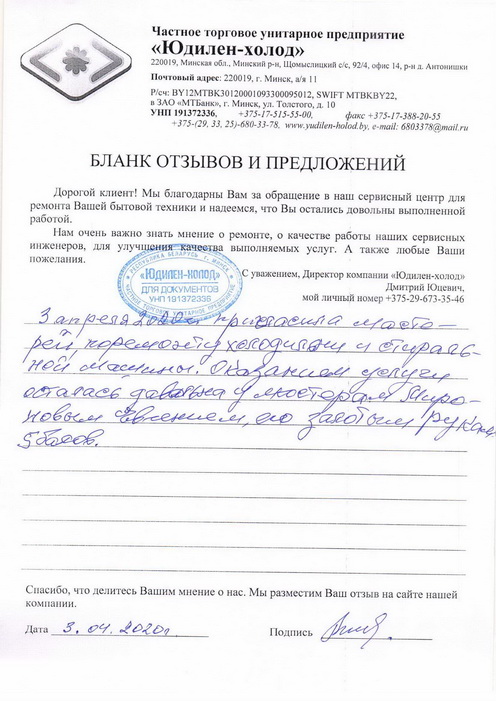 Частное торговое унитарное предприятие
«Юдилен-холод»
220019, Минская обл., Минский р-н, Щомыслицкий с/с, 92/4, офис 14, р-н д. Антонишки
Почтовый адрес: 220019, г. Минск, а/я 11
Р/сч: BY12MTBK30120001093300095012, SWIFT MTBKBY22,
в ЗАО «МТБанк», г. Минск, ул. Толстого, д. 10
УНП 191372336, +375-17-515-55-00, факс +375-17-388-20-55
+375-(29, 33, 25)-680-33-78, www.yudilen-holod.by, e-mail: 6803378@mail.ru
БЛАНК ОТЗЫВОВ И ПРЕДЛОЖЕНИЙ
Дорогой клиент! Мы благодарны Вам за обращение в наш сервисный центр для
ремонта Вашей бытовой техники и надеемся, что Вы остались довольны выполненной
работой.
Нам очень важно знать мнение о ремонте, о качестве работы наших сервисных
инженеров, для улучшения качества выполняемых услуг. А также любые Ваши
пожелания.
С уважением, Директор компании «Юдилен-холод»
Дмитрий Юцевич,
мой личный номер +375-29-673-35-46
РЕСПУБЛИКА БЕЛАРУСЬ г. МИНСК
«ЮДИЛЕН-ХОЛОД»
ДЛЯ ДОКУМЕНТОВ
УНП 191372336
3 апреля 2020г. пригласила масте-
рей, по ремонту холодильн и стираль-
ной машины. Оказанием услуги
осталась довольна и мастерам Миро-
новым Евгением, его золотым рукам
5 балов.
Спасибо, что делитесь Вашим мнение о нас. Мы разместим Ваш отзыв на сайте нашей
компании.
Дата 3.04.2020г. Подпись